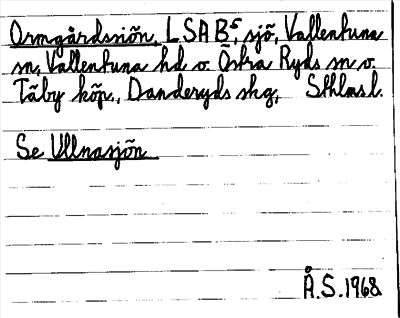 Ormgårdssjön, LSAB⁵, sjö, Vallentuna
sn, Vallentuna hd o. Östra Ryds sn o.
Täby köp., Danderyds skg, Sthlms l.
Se Ullnasjön
Å.S. 1968